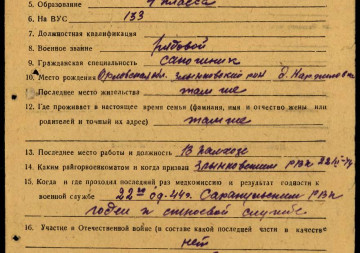 5. Образование 4 класса
6. На ВУС 133
7. Должностная квалификация
8. Военное звание рядовой
9. Гражданская специальность сапожник
10. Место рождения Орловская обл. Злынковский р-он д.
Последнее место жительства там же
12. Где проживает в настоящее время семья (фамилия, имя и отчество жены или
родителей и точный их адрес) там же
13. Последнее место работы и должность В колхозе
14. Каким райгорвоенкоматом и когда призван Злынковским РВК
15. Когда и где проходил последний раз медкомиссию и результат годности к
военной службе 22 44г. РВК
годен к строевой службе
16. Участие в Отечественной войне (в составе какой последней части в качестве
нет